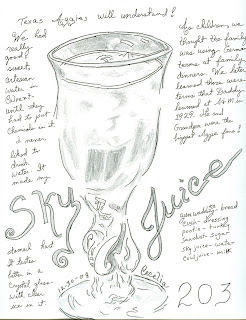 Texas Aggies will understand!
We had
really
good &
sweet
artesian
water
in
Calvert
until they
had to put
Chemicals in it.
I never
liked to
drink
water. It
made my
stomach that
It tastes
better in a
Crystal glass
with clear
ice in it.
As children we
thought the family
was using German
terms at family
dinners. We later
learned those were
terms that Daddy
learned at A&M in
1929. He and
Grandpa were the
biggest Aggie fans!
Sky Juice
bread
dressing
turkey
Sawdust - Sugar
Sky juice - water
Cowjuice - milk
12-30-09
Cecelia
203